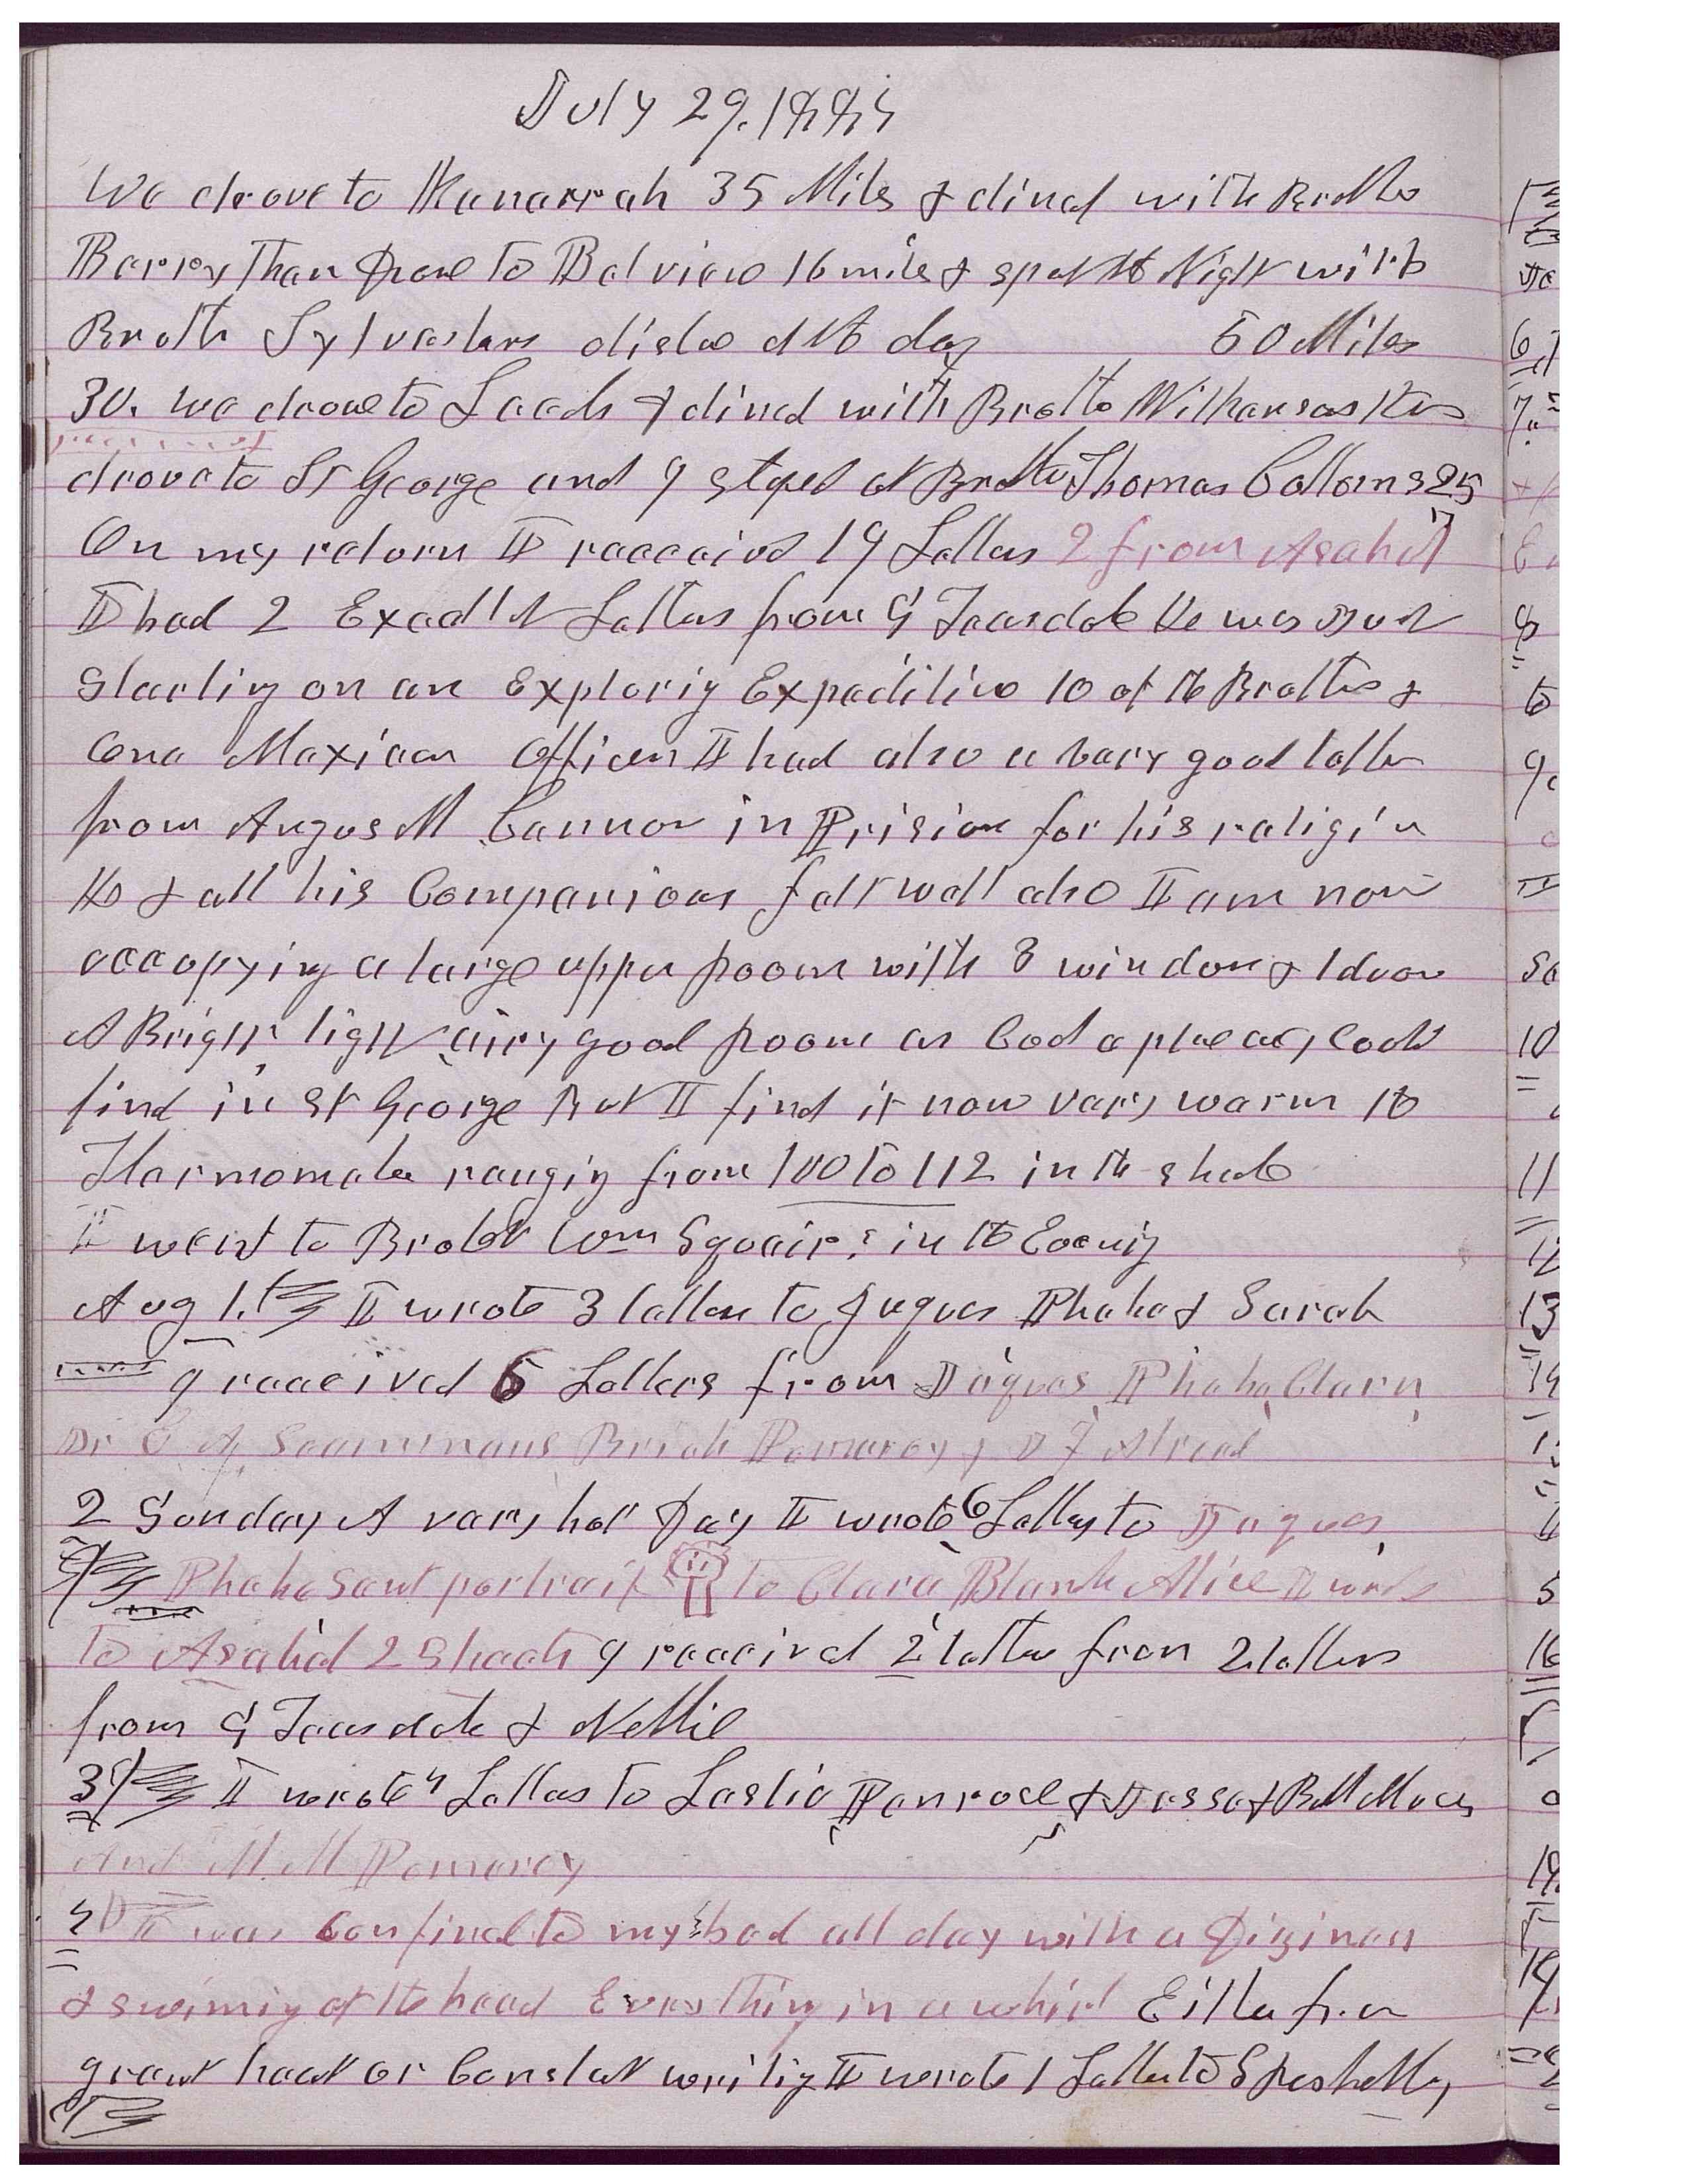 July 29, 1885
We drove to Kanarrah 35 Miles & dined with Brother
Berry Then drove to Belview 16 miles & spent the Night with
Brother Sylvesters distance of the day 50 Miles
30. we drove to Leeds & dined with Brother Wilkerson then
drove to St George and I stoped at Brother Thomas Cottoms 25
On my return I received 19 Letters 2 from Asahel
I had 2 Excellent Letters from G Teasdale He was Just
starting on an Exploring Expedition 10 of the Brethren &
One Mexican Officer I had also a vary good letter
from Angus M Cannon in Prision for his religion
He & all his Companions felt well also I am now
occopying a large upper room with 3 windows & 1 door
A Bright light airy good room as cool a place as I could
find in St George But I find it now vary warm the
Thermometer ranging from 100 to 112 in the shade
I went to Brother Wm Squairs in the Evening
Aug 1. I wrote 3 letters to Jaques Phebe & Sarah
I received 6 Letters from Jaques, Phebe, Clara,
Dr Seammans Brick Pomeroy,
2 Sunday A vary hot Day I wrote 6 Letters to Jaques,
Phebe sent portrait to Clara Blanch Alice I wrote
to Asahel 2 Sheets I received 2 letters from 2 letters
from G Teasdale & Nellie
3 I wrote 4 Letters to Leslie Penrose &
And M. M Pomeroy
4 I was confined to my bed all day with a Diziness
& swiming of the head Evrything in a whirl Either from
great heat or Constant writing I wrote 1 Letter to